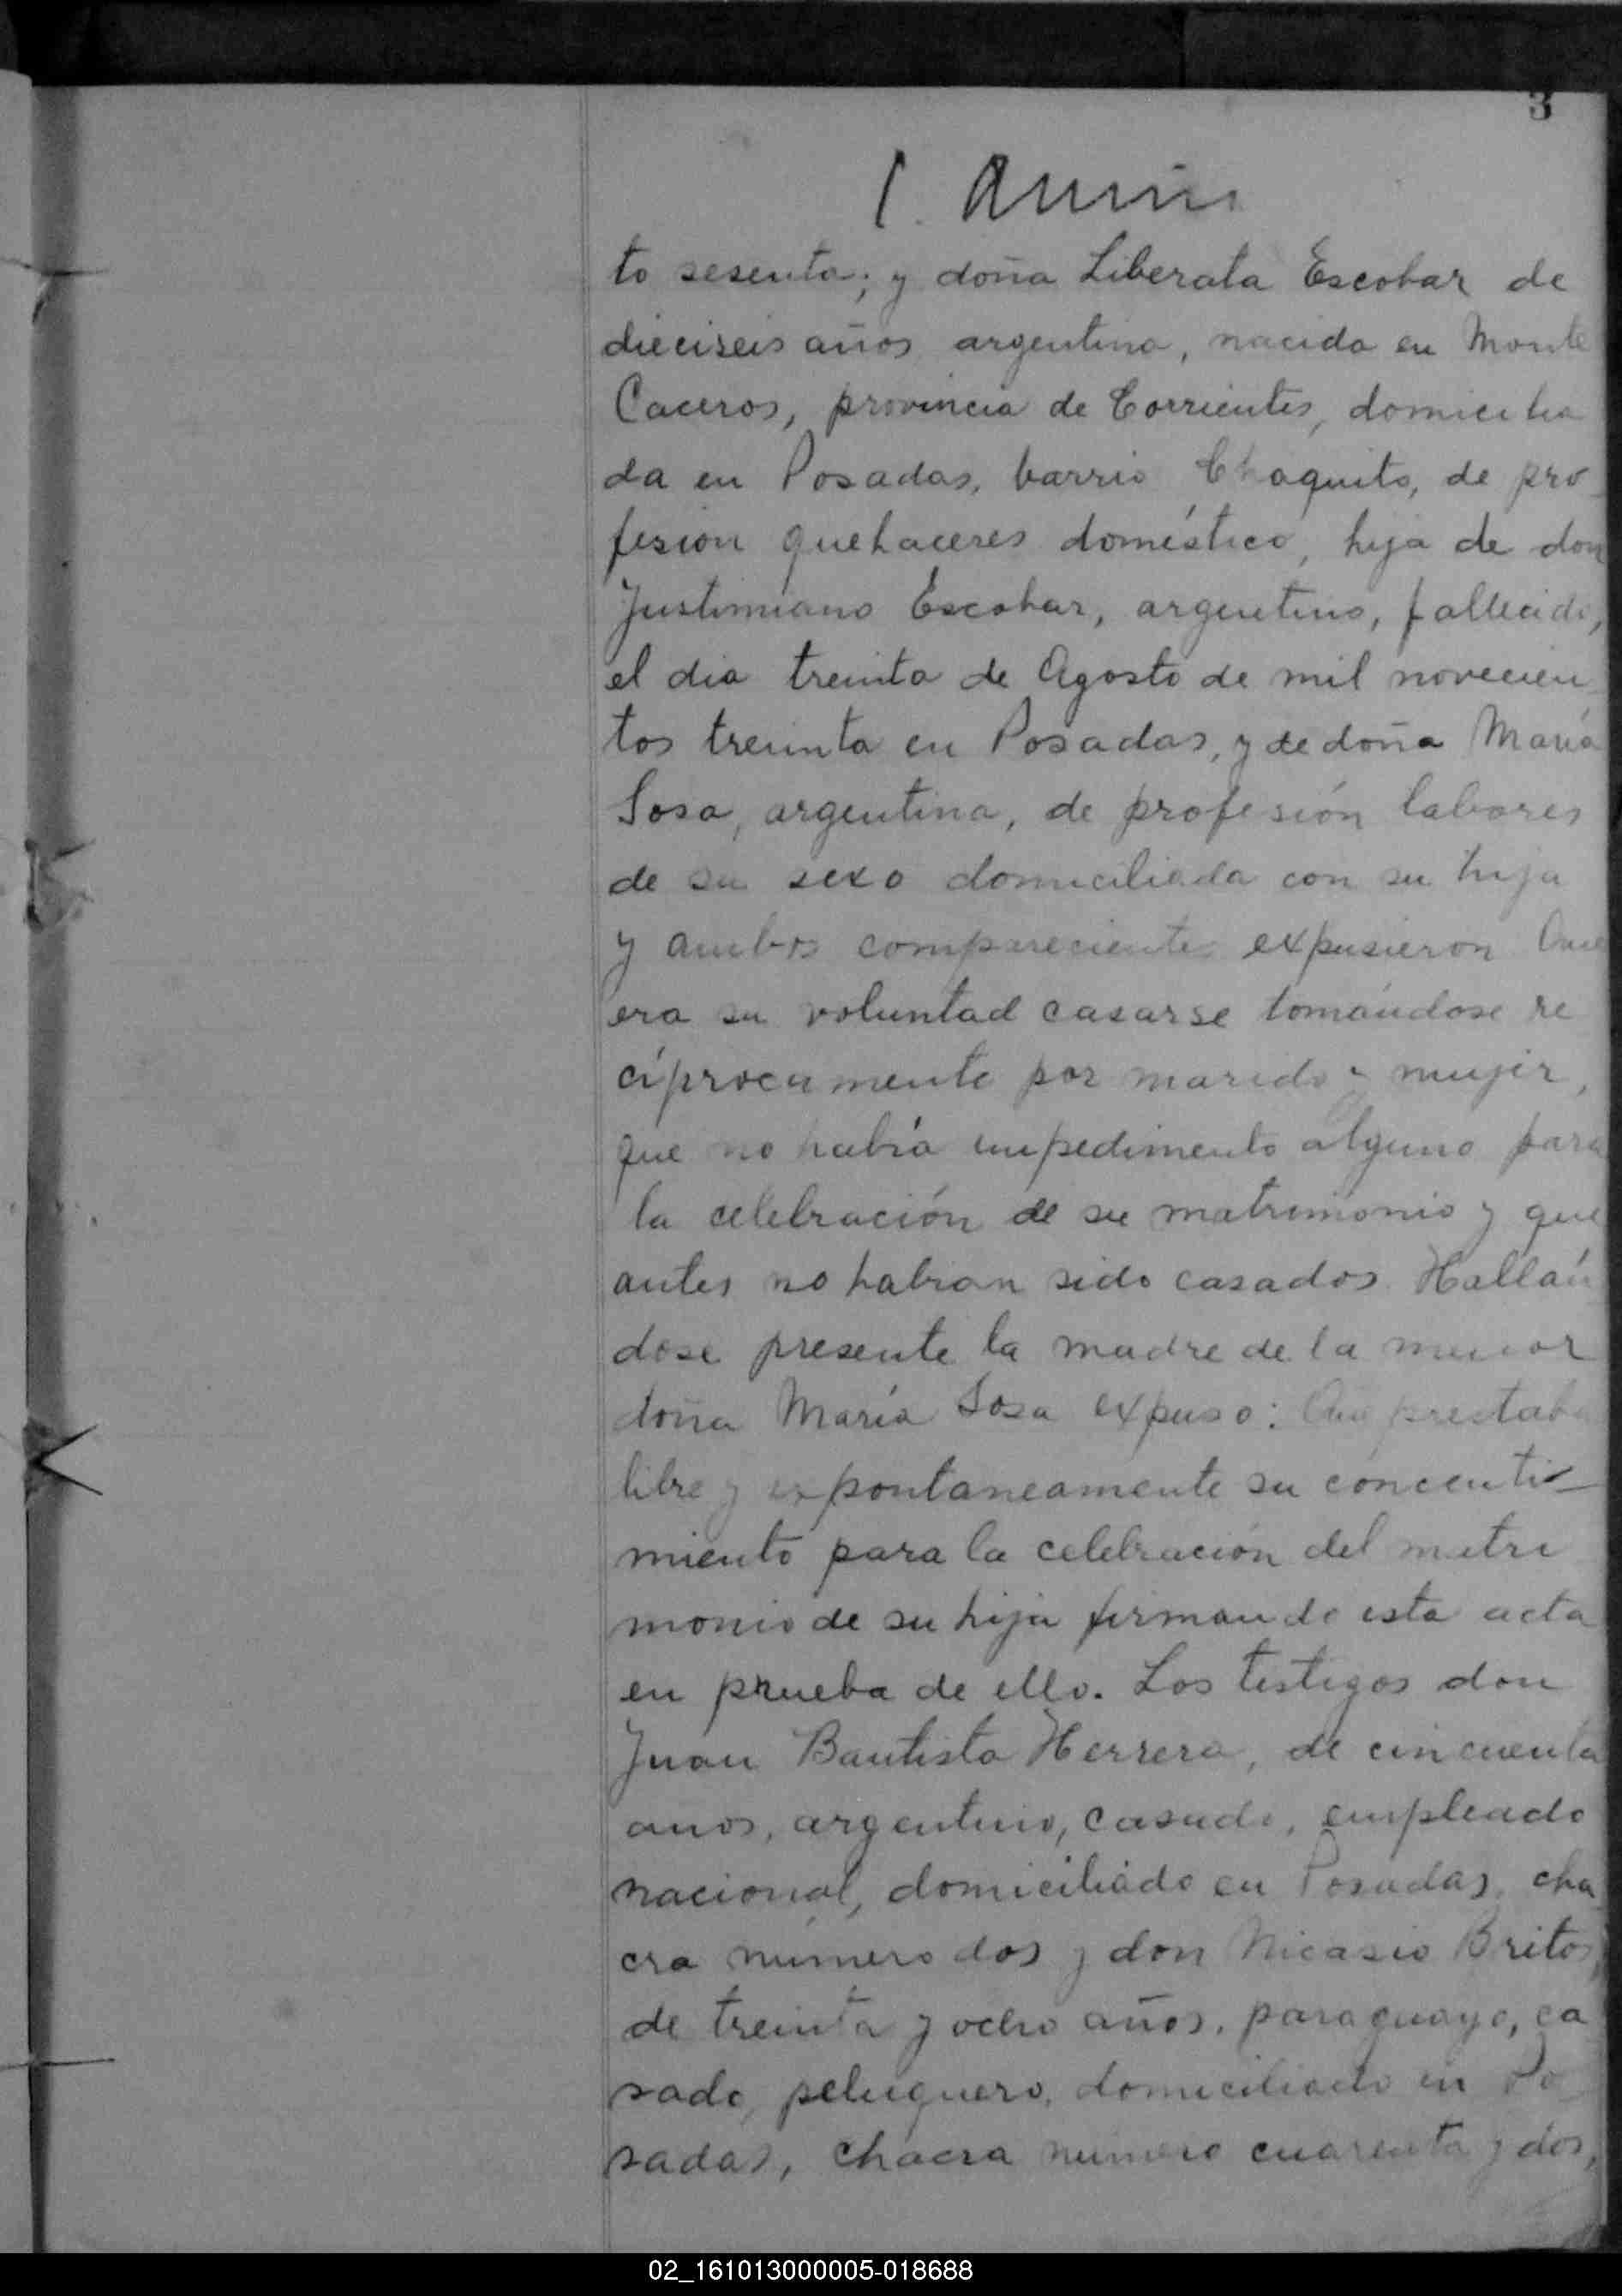 3
to sesenta; y doña Liberata Escobar de
dieciseis años argentina, nacida en Monte
Caceros, provincia de Corrientes, domicilia
da en Posadas, barrio Chaquito, de pro-
fesion quehaceres doméstico, hija de don
Justiniano Escobar, argentino, fallecido,
el dia treinta de Agosto de mil novecien-
tos treinta en Posadas, y de doña María
Sosa, argentina, de profesión labores
de su sexo domiciliada con su hija
y ambos compareciente expusieron Que
era su voluntad casarse tomándose re
cíprocamente por marido y mujer,
que no había impedimento alguno para
la celebración de su matrimonio y que
antes no habian sido casados. Hallán
dose presente la madre de la menor
doña María Sosa expuso: Que prestaba
libre y expontaneamente su concenti-
miento para la celebración del matri
monio de su hija firmando esta acta
en prueba de ello. Los testigos don
Juan Bautista Herrera, de cincuenta
anos, argentino, casado, empleado
nacional, domiciliado en Posadas, cha
cra número dos y don Nicasio Britos,
de treinta y ocho años, paraguayo, ca
sado, peluquero, domiciliado en Po
sadas, chacra numero cuarenta y dos,
02_161013000005-018688